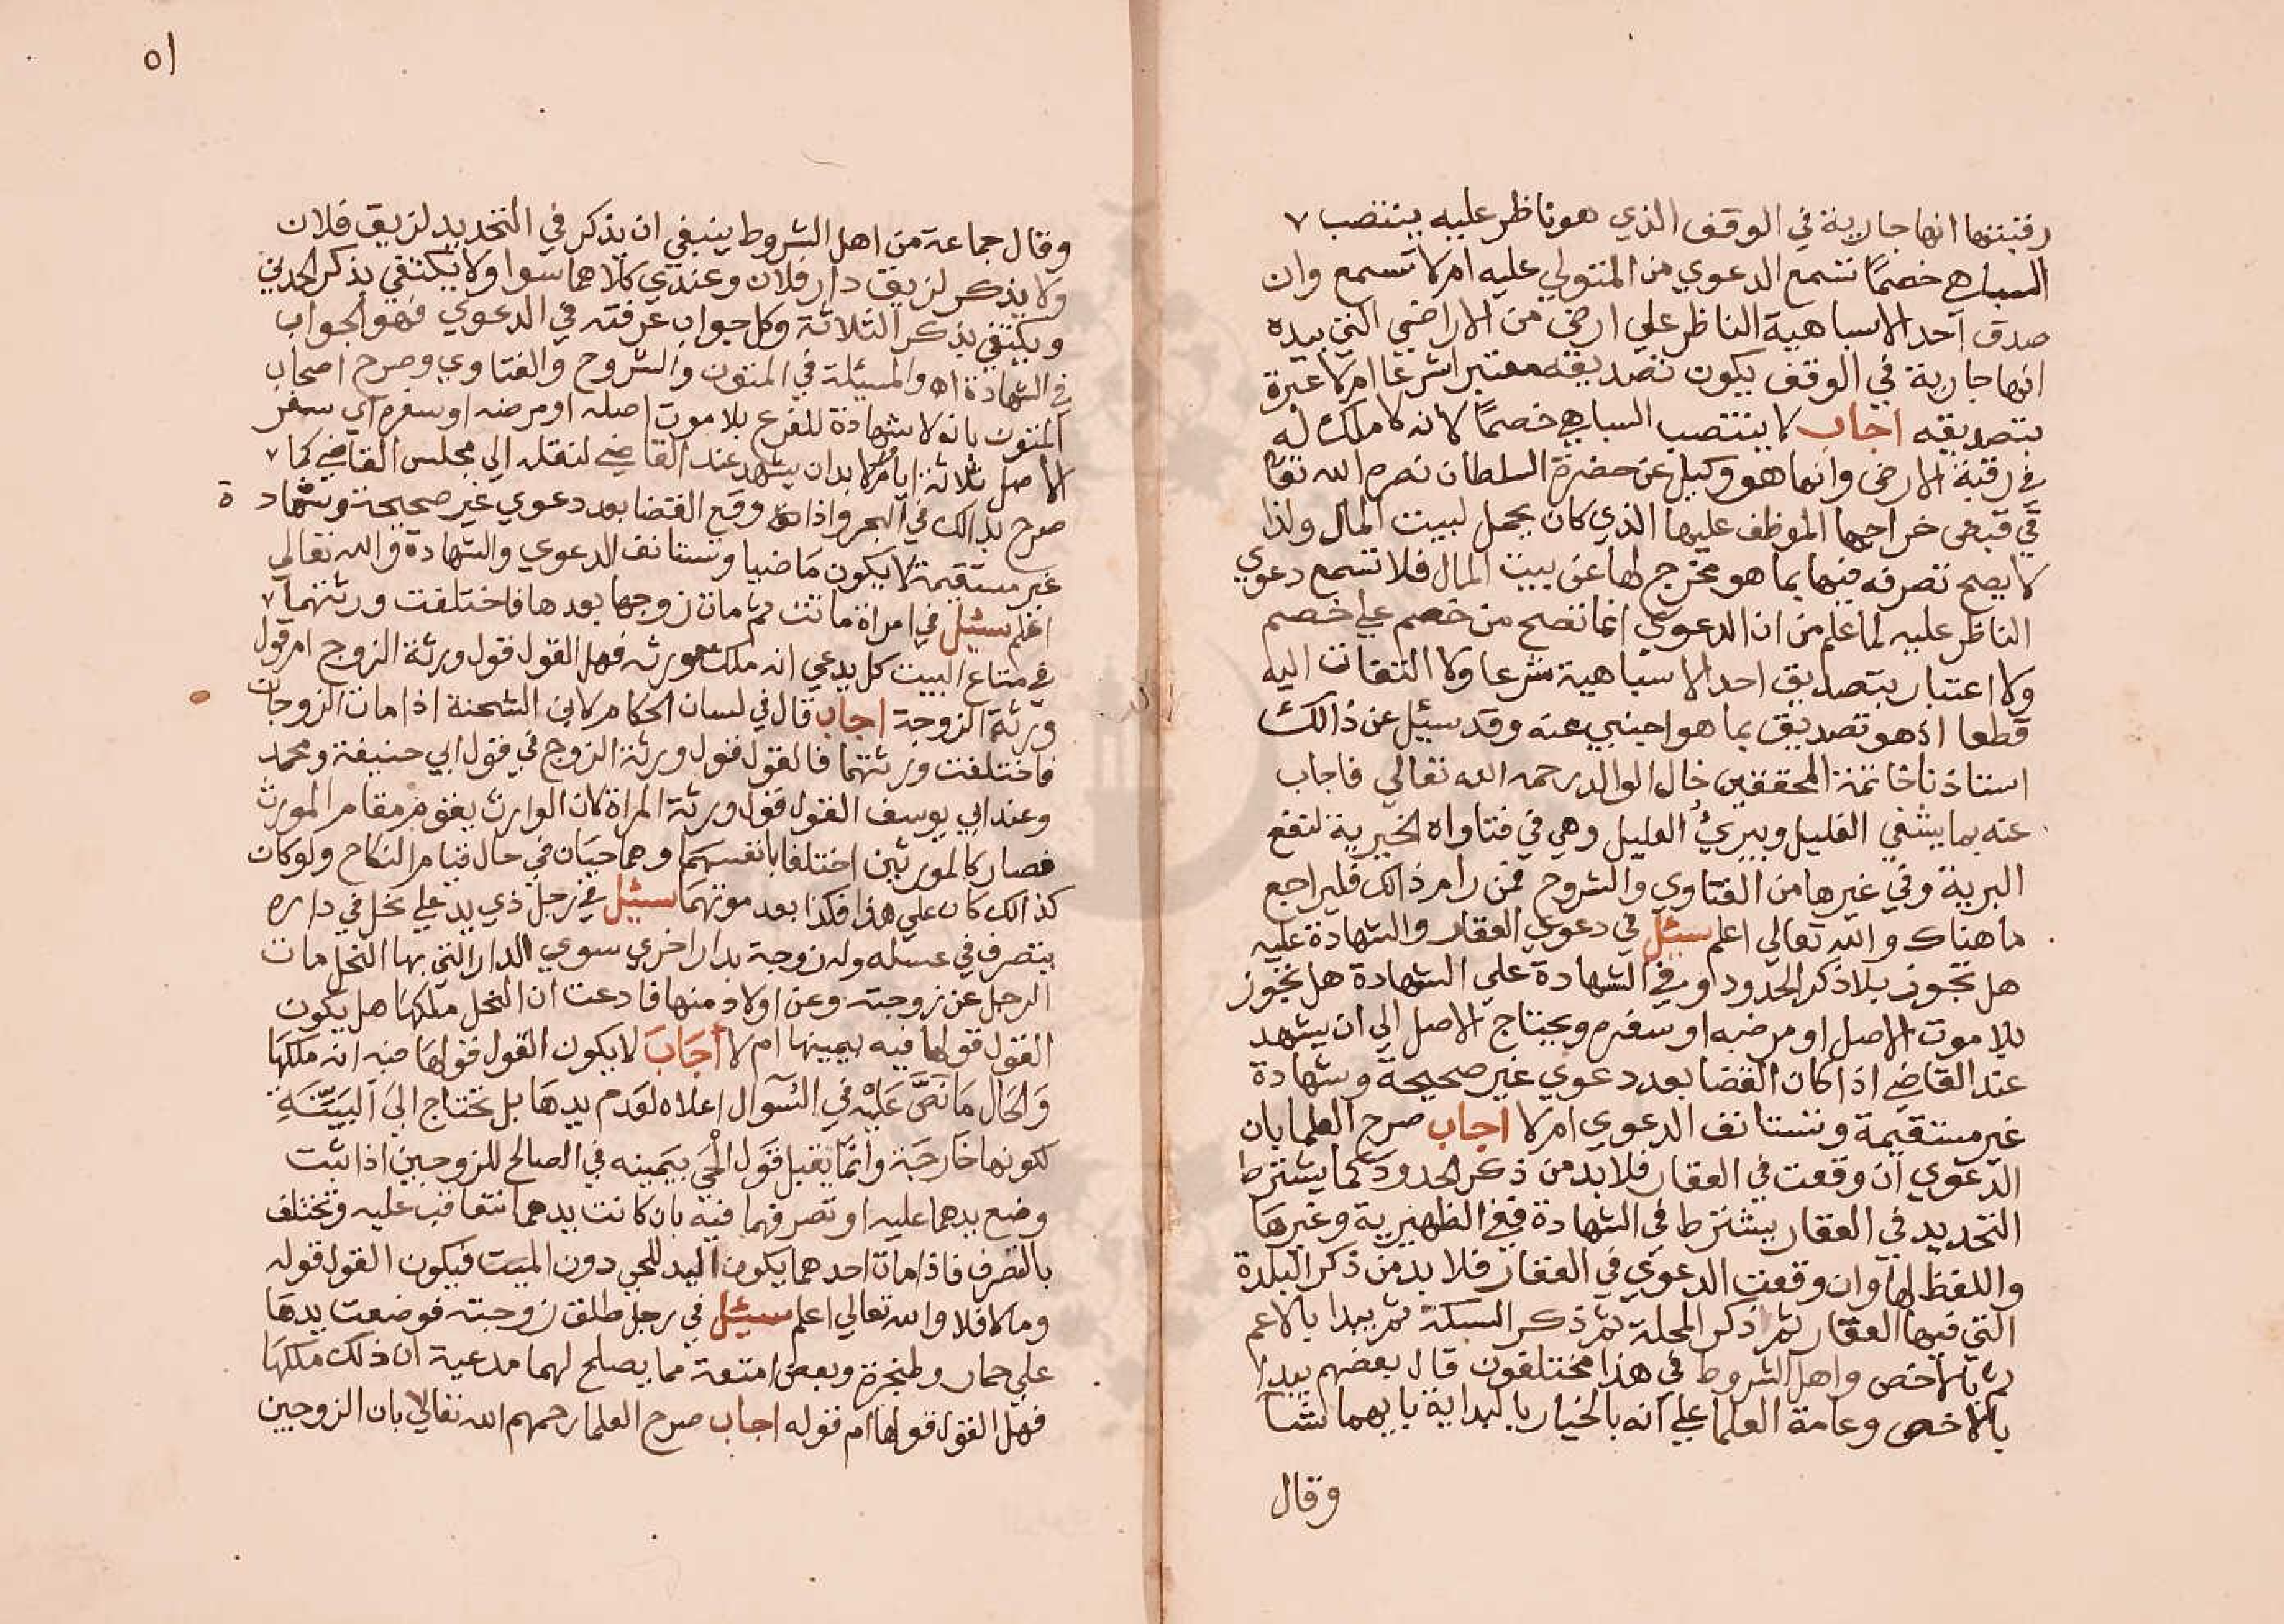 رقبتها انها جارية في الوقف الذي هو ناظر عليه ينتصب
السباهي خصمًا تسمع الدعوي من المتولي عليه ام لا تسمع وان
صدق احد الاسباهية الناظر علي ارض من الاراضي التي بيده
انها جارية في الوقف يكون تصديقه معتبرا شرعا ام لا عبرة
بتصديقه اجاب لا ينتصب السباهي خصمًا لانه لا ملك له
في رقبة الارض وانما هو وكيل عن حضرة السلطان نصره الله تعا
في قبض خراجها الموظف عليها الذي كان يحمل لبيت المال ولذا
لا يصح تصرفه فيها بما هو مخرج لها عن بيت المال فلا تسمع دعوي
الناظر عليه لما علم من ان الدعوي انما تصح من خصم علي خصم
ولا اعتبار بتصديق احد الاسباهية شرعا ولا التفات اليه
قطعا اذ هو تصديق بما هو اجنبي عنه وقد سئيل عن ذالك
استاذنا خاتمة المحققين خال الوالد رحمه الله تعالي فاجاب
عنه بما يشفي الغليل ويبريُ العليل وهي في فتاواه الخيرية لنفع
البرية وفي غيرها من الفتاوي والشروح فمن رام ذالك فليراجع
ما هناك والله تعالي اعلم سئيل في دعوي العقار والشهادة عليه
هل تجوز بلا ذكر الحدود او في الشهادة علي الشهادة هل تجوز
بلا موت الاصل او مرضه او سفره ويحتاج الاصل الي ان يشهد
عند القاضي اذا كان القضا بعد دعوي غير صحيحة وشهادة
غير مستقيمة وتستانف الدعوي ام لا اجاب صرح العلما بان
الدعوي ان وقعت في العقار فلا بد من ذكر الحدود كما يشترط
التحديد في العقار يشترط في الشهادة ففي الظهيرية وغيرها
واللفظ لها وان وقعت الدعوي في العقار فلا بد من ذكر البلدة
التي فيها العقار ثم ذكر المحلة ثم ذكر السكة ثم يبدا بالاعم
ثم بالاخص واهل الشروط في هذا مختلفون قال بعضهم يبدا
بالاخص وعامة العلما علي انه بالخيار بالبداية بايهما شا
وقال
٥١
وقال جماعة من اهل الشروط ينبغي ان يذكر في التحديد لزيق فلان
ولا يذكر لزيق دار فلان وعندي كلاهما سوا ولا يكتفي بذكر الحدين
ويكتفي بذكر الثلاثة وكل جواب عرفته في الدعوي فهو الجواب
في الشهادة اه والمسئلة في المتون والشروح والفتاوي وصرح اصحاب
المتون بانه لا شهادة للفرع بلا موت اصله او مرضه او سفره اي سفر
الاصل ثلاثة ايام لا بد ان يشهد عند القاضي لنقله الي مجلس القاضي كما
صرح بذالك في البحر واذا وقع القضا بعد دعوي غير صحيحة وشهادة
غير مستقيمة لا يكون ماضيا وتستانف الدعوي والشهادة والله تعالي
اعلم سئيل في امراة ماتت ثم مات زوجها بعدها فاختلفت ورثتهما
في متاع البيت كل يدعي انه ملك مورثه فهل القول قول ورثة الزوج ام قول
ورثة الزوجة اجاب قال في لسان الحكام لابن الشحنة اذا مات الزوجان
فاختلفت ورثتهما فالقول قول ورثة الزوج في قول ابي حنيفة ومحمد
وعند ابي يوسف القول قول ورثة المراة لان الوارث يقوم مقام المورث
فصار كالمورثين اختلفا بانفسهما وهما حيان في حال قيام النكاح ولو كان
كذالك كان علي هذا فكذا بعد موتهما سئيل في رجل ذي يد علي نحل في داره
يتصرف في عسله وله زوجة بدار اخري سوي الدار التي بها النحل مات
الرجل عن زوجته وعن اولاد منها فادعت ان النحل ملكها هل يكون
القول قولها فيه بيمينها ام لا أجَابَ لا يكون القول قولها منه انه ملكها
وَالحَال مَا نصَّ عَليْه في السُّوَال اعلاه لعَدم يدهَا بل تحتاج اليَ البَيّنَةِ
لكونها خارجَة وانمَّا يقبل قَول الْحَي بيَمينه في الصالح للزوجين اذا ثبت
وضع يدهما عليه او تصرفهما فيه بان كانت يدهما تتعاقب عليه وتختلف
بالتصرف فاذا مات احدهما يكون اليد للحي دون الميت فيكون القول قوله
وما لا فلا والله تعالي اعلم سئيل في رجل طلق زوجته فوضعت يدها
علي حمار وطنجرة وبعض امتعة مما يصلح لهما مدعية ان ذلك ملكها
فهل القول قولها ام قوله اجاب صرح العلما رحمهم الله تعالي بان الزوجين